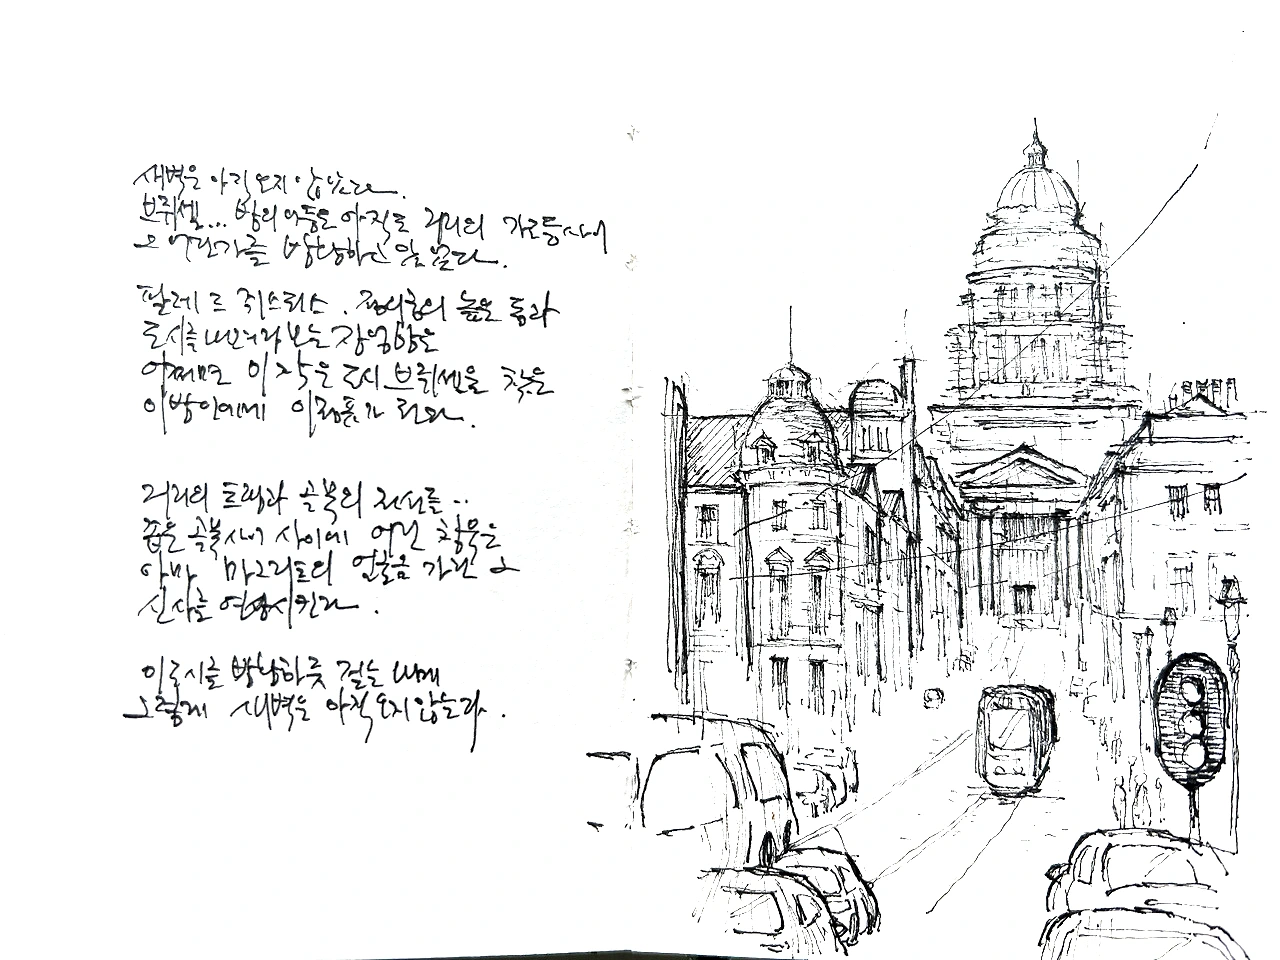 새벽은 아직 오지 않았다.
브뤼셀... 밤의 어둠은 아직도 거리의 가로등 사이
방황하고 있었다.
팔레 드 쥐스티스. 높은 돔과
도시를 내려다 보는 장엄함은
어쩌면 이 작은 도시 브뤼셀을 찾은
이방인에게 이정표가 된다.
거리의 트램과 골목의 전선들..
좁은 골목 사이 사이에 어린 침묵은
아마 마그리트의 얼굴을 가린
신사를 연상시킨다.
이 도시를 방황하듯 걷는 내게
그렇게 새벽은 아직 오지 않는다.